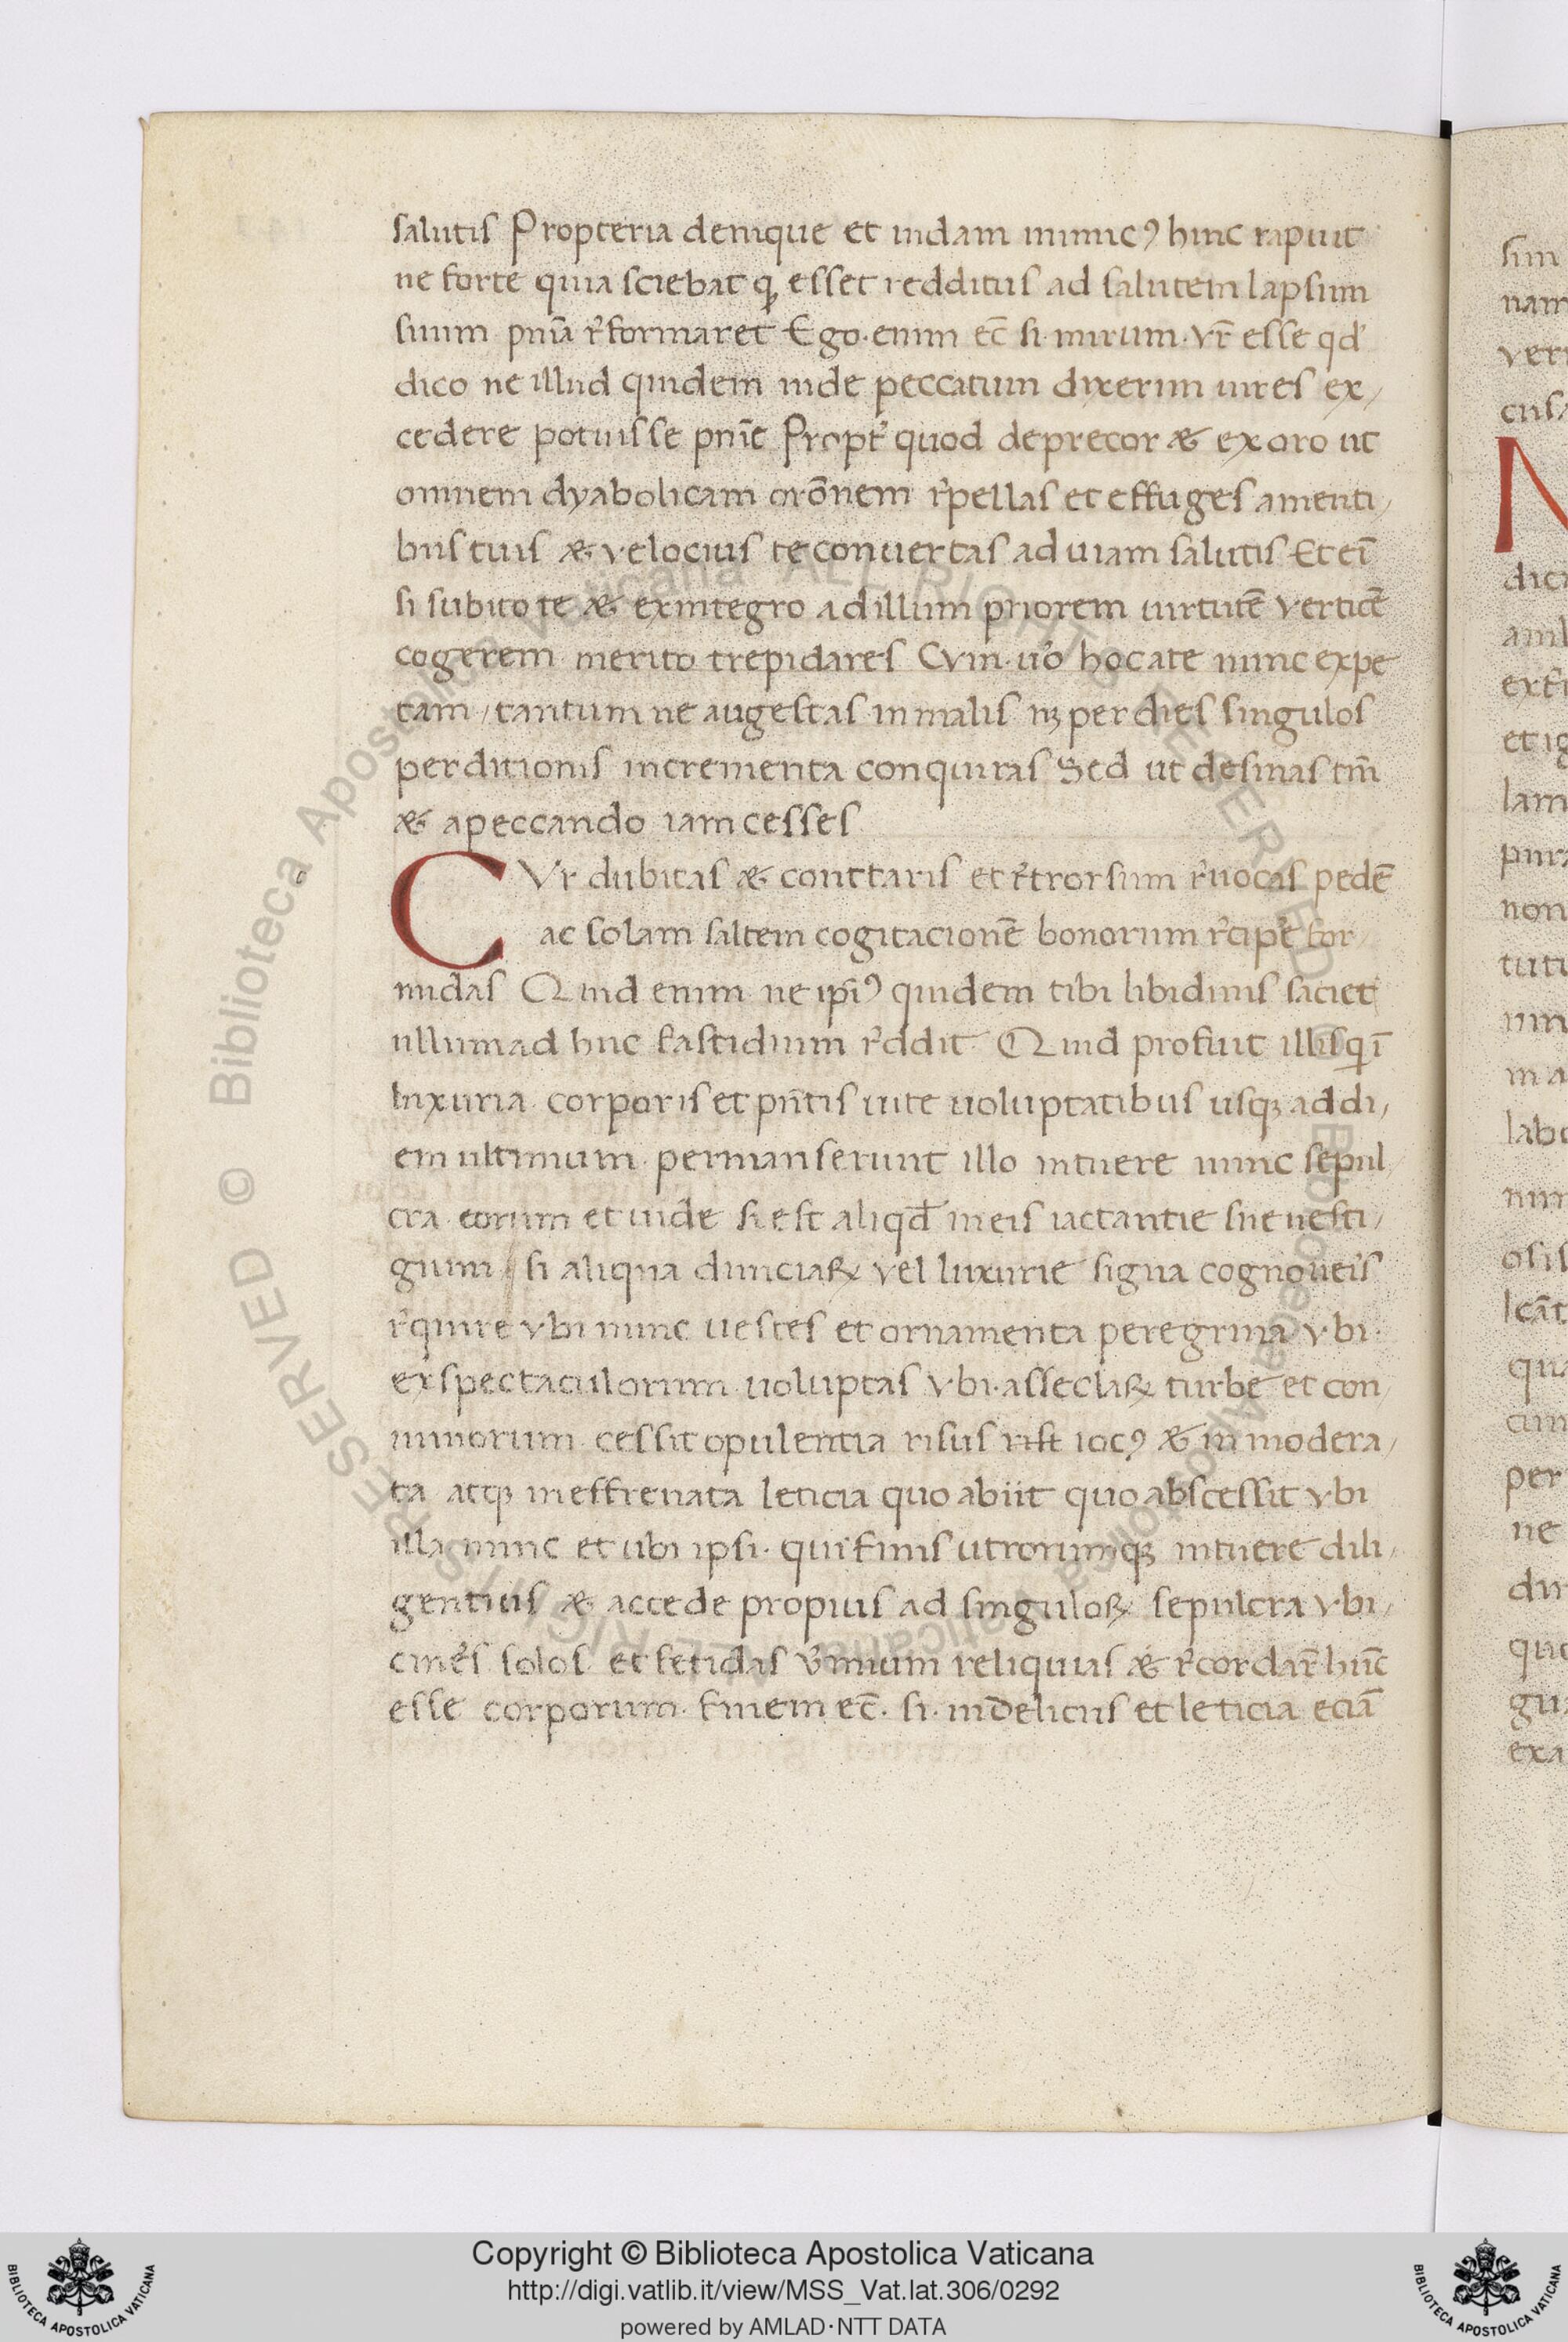 salutis Propteria denique et iudam inimicꝰ hinc rapuit
ne forte quia sciebat ꝙ esset redditus ad salutem lapsum
suum pnīa r̓formaret Ego·enim ec̄ si·mirum·vr̄ esse qd̓
dico ne illud quidem iude peccatum dixerim uires ex/
cedere potuisse pnīe Propt̓ quod deprecor & exoro ut
omnem dyabolicam orōnem r̓pellas et effuges amenti/
bus tuis & velocius te conuertas ad uiam salutis Et eī
si subito te & exintegro adillum priorem uirtutē verticē
cogerem merito trepidares Cvm·uo̓ hocate nunc expe
tam/tantum ne augestas inmalis nꝫ per dies singulos
perditionis incrementa conquiras Sed ut desinas tm̄
& apeccando iam cesses
CVr dubitas & conttaris et r̓trorsum r̓uocas pedē
ac solam saltem cogitacionē bonorum r̓cipe̓ for/
midas Quid enim ne ipīꝰ quidem tibi libidinis saciet
ullum ad huc fastidium r̓ddit Quid profuit illis qī
luxuria corporis et pn̄tis uite uoluptatibus usqꝫ ad di/
em ultimum permanserunt illo intuere nunc sepul
cra eorum et uide si est aliqd̄ ineis iactantie sue uesti/
gium / si aliqua diuiciaꝝ vel luxurie signa cognoue̓is
r̓quire vbi nunc uestes et ornamenta peregrina vbi·
exspectaculorum uoluptas vbi·asseclaꝝ turbe et con/
uiuorum cessit opulentia risus rist iocꝰ & in modera/
ta atqꝫ ineffrenata leticia quo abiit quo abscessit vbi
illa nunc et ubi ipsi· qui finis utrorumqꝫ intuere dili/
gentius & accede propius ad singuloꝝ sepulcra vbi/
cine̓s solos et fetidas v̓mium reliquias & r̓cordar̄ hūc
esse corporum finem ec̄· si·indelicius et leticia eciā
Copyright © Biblioteca Apostolica Vaticana
http://digi.vatlib.it/view/MSS_Vat.lat.306/0292
powered by AMLAD·NTT DATA